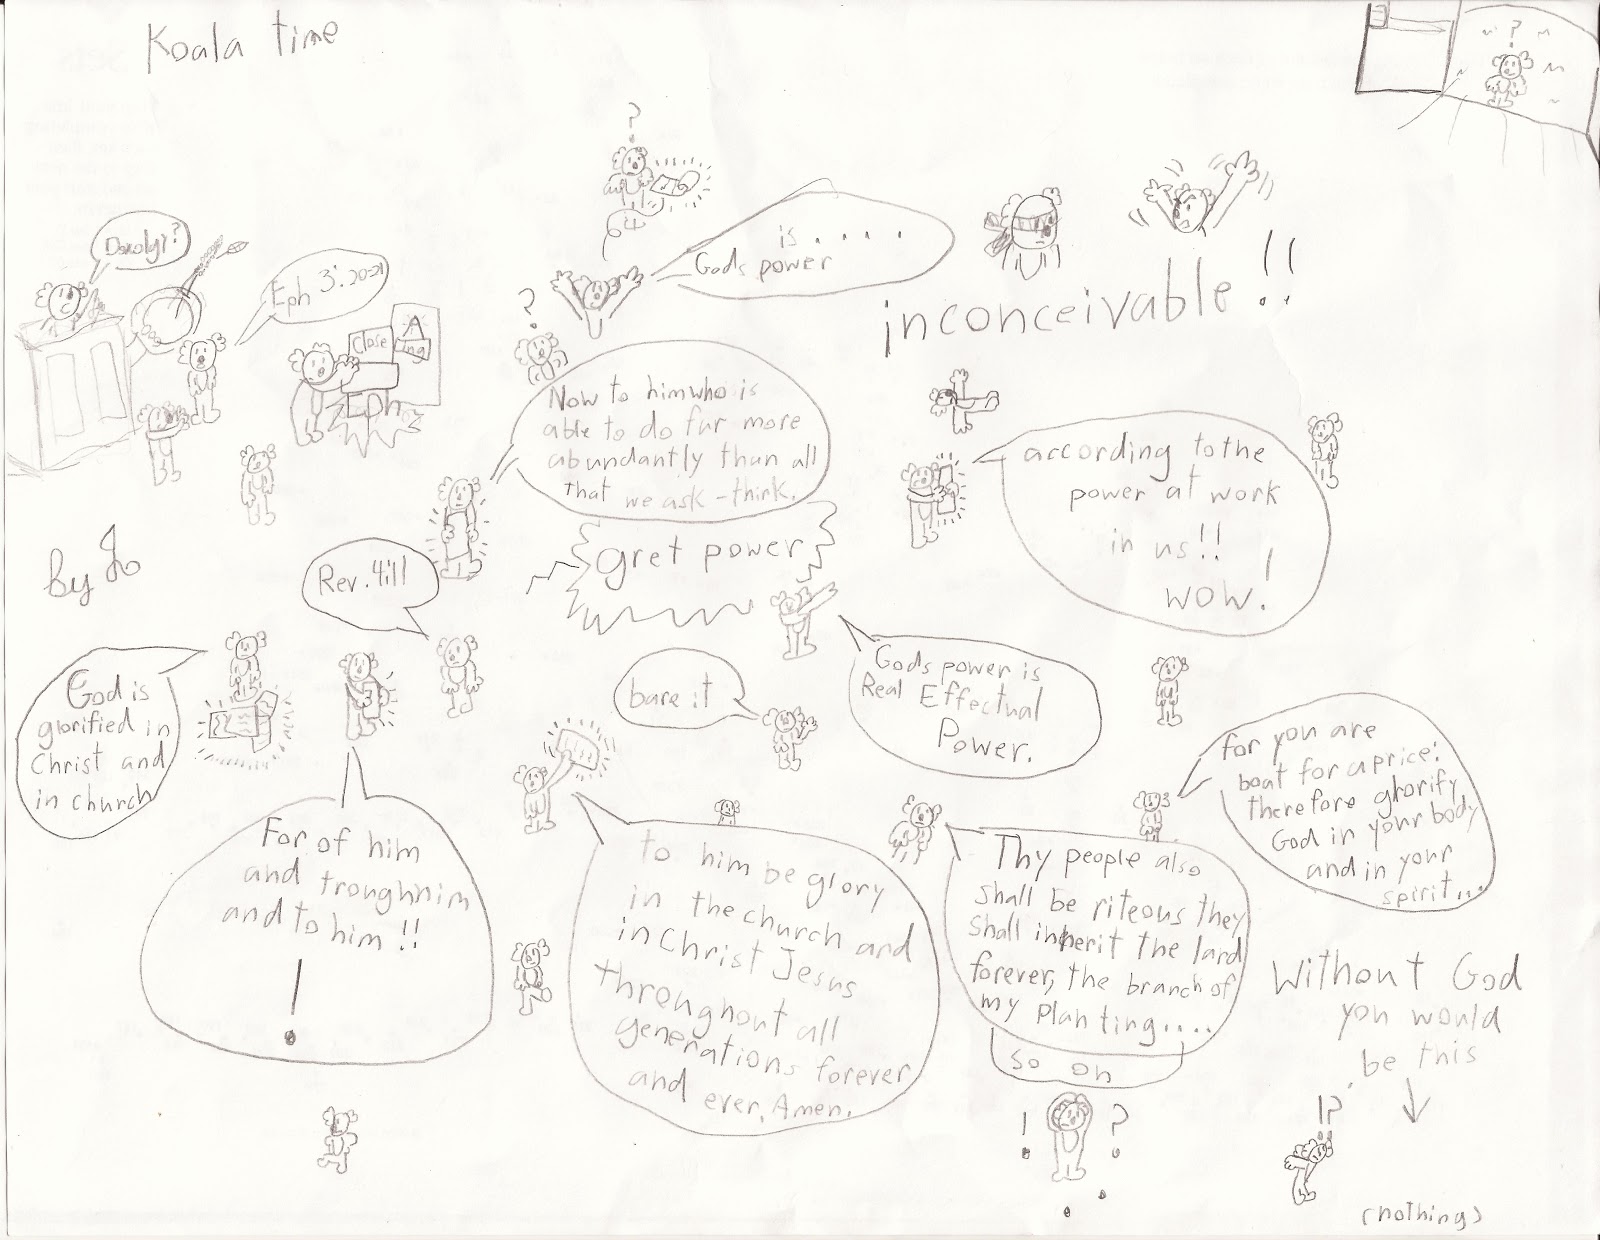 Koala time
?
?
Doxolgy?
Eph 3:20-21
Close
A
ing
Eph
?
?
is ....
Gods power
inconceivable!!
Now to him who is
able to do fur more
abundantly than all
that we ask - think.
gret power
according to the
power at work
in us!!
wow!
by Jo
Rev. 4:11
God is
glorified in
Christ and
in church
bare it
Gods power is
Real Effectual
Power.
For of him
and troughhim
and to him!!
!
to him be glory
in the church and
in Christ Jesus
throughout all
generations forever
and ever, Amen.
Thy people also
shall be riteous they
shall inherit the land
forever, the branch of
my planting....
so on
for you are
boat for a price:
therefore glorify
God in your body
and in your
spirit...
Without God
you would
be this
! ?
!?
(nothing)